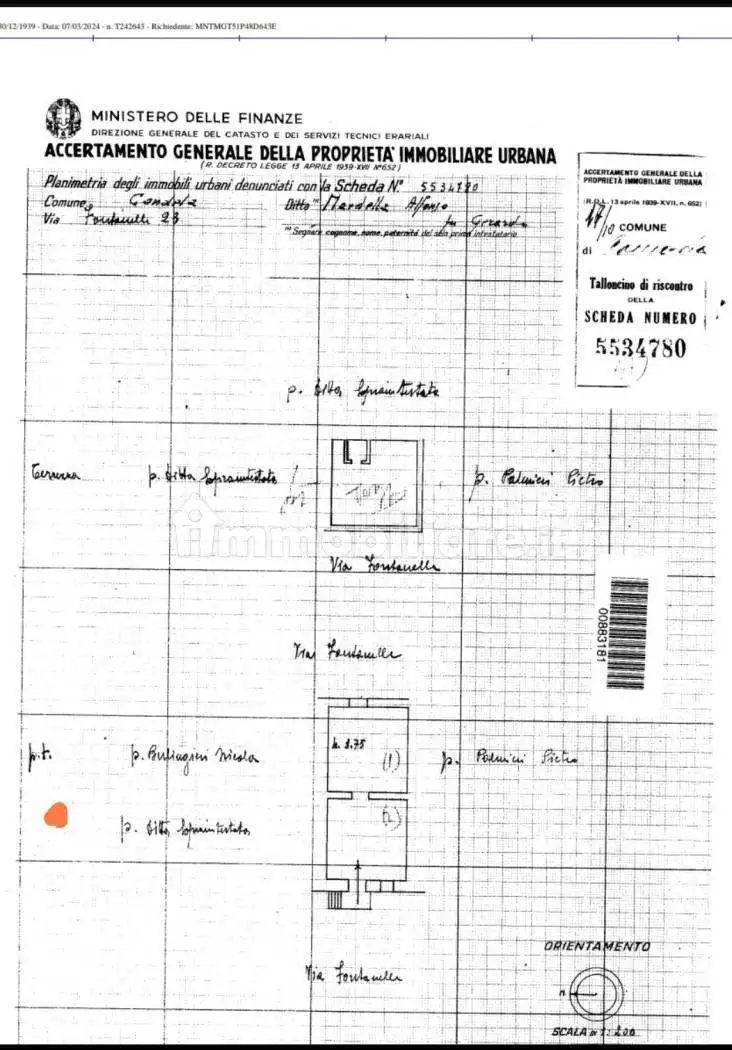 30/12/1939 - Data: 07/03/2024 - n. T242643 - Richiedente: MNTMGT51P48D643E
MINISTERO DELLE FINANZE
DIREZIONE GENERALE DEL CATASTO E DEI SERVIZI TECNICI ERARIALI
ACCERTAMENTO GENERALE DELLA PROPRIETA' IMMOBILIARE URBANA
(R. DECRETO LEGGE 13 APRILE 1939-XVII N° 652)
Planimetria degli immobili urbani denunciati con la Scheda N° 5534780
Comune Candela Ditta (1) Mardella Alfonso
Via Fontanelle 23 fu Gerardo
(1) Segnare cognome, nome, paternità del solo primo intestatario
ACCERTAMENTO GENERALE DELLA
PROPRIETÀ IMMOBILIARE URBANA
(R.D.L. 13 aprile 1939-XVII, n. 652)
COMUNE
di
Talloncino di riscontro
DELLA
SCHEDA NUMERO
5534780
p. Ditta Sopraintestata
p. Ditta Sopraintestata
p. Palmieri Pietro
Via Fontanelle
immobiliare.it
00883181
Via Fontanelle
h. 3.75
(1)
p.t.
p. Nicola
p. Palmieri Pietro
(2)
p. Ditta Sopraintestata
ORIENTAMENTO
Via Fontanelle
N
SCALA DI 1: 200